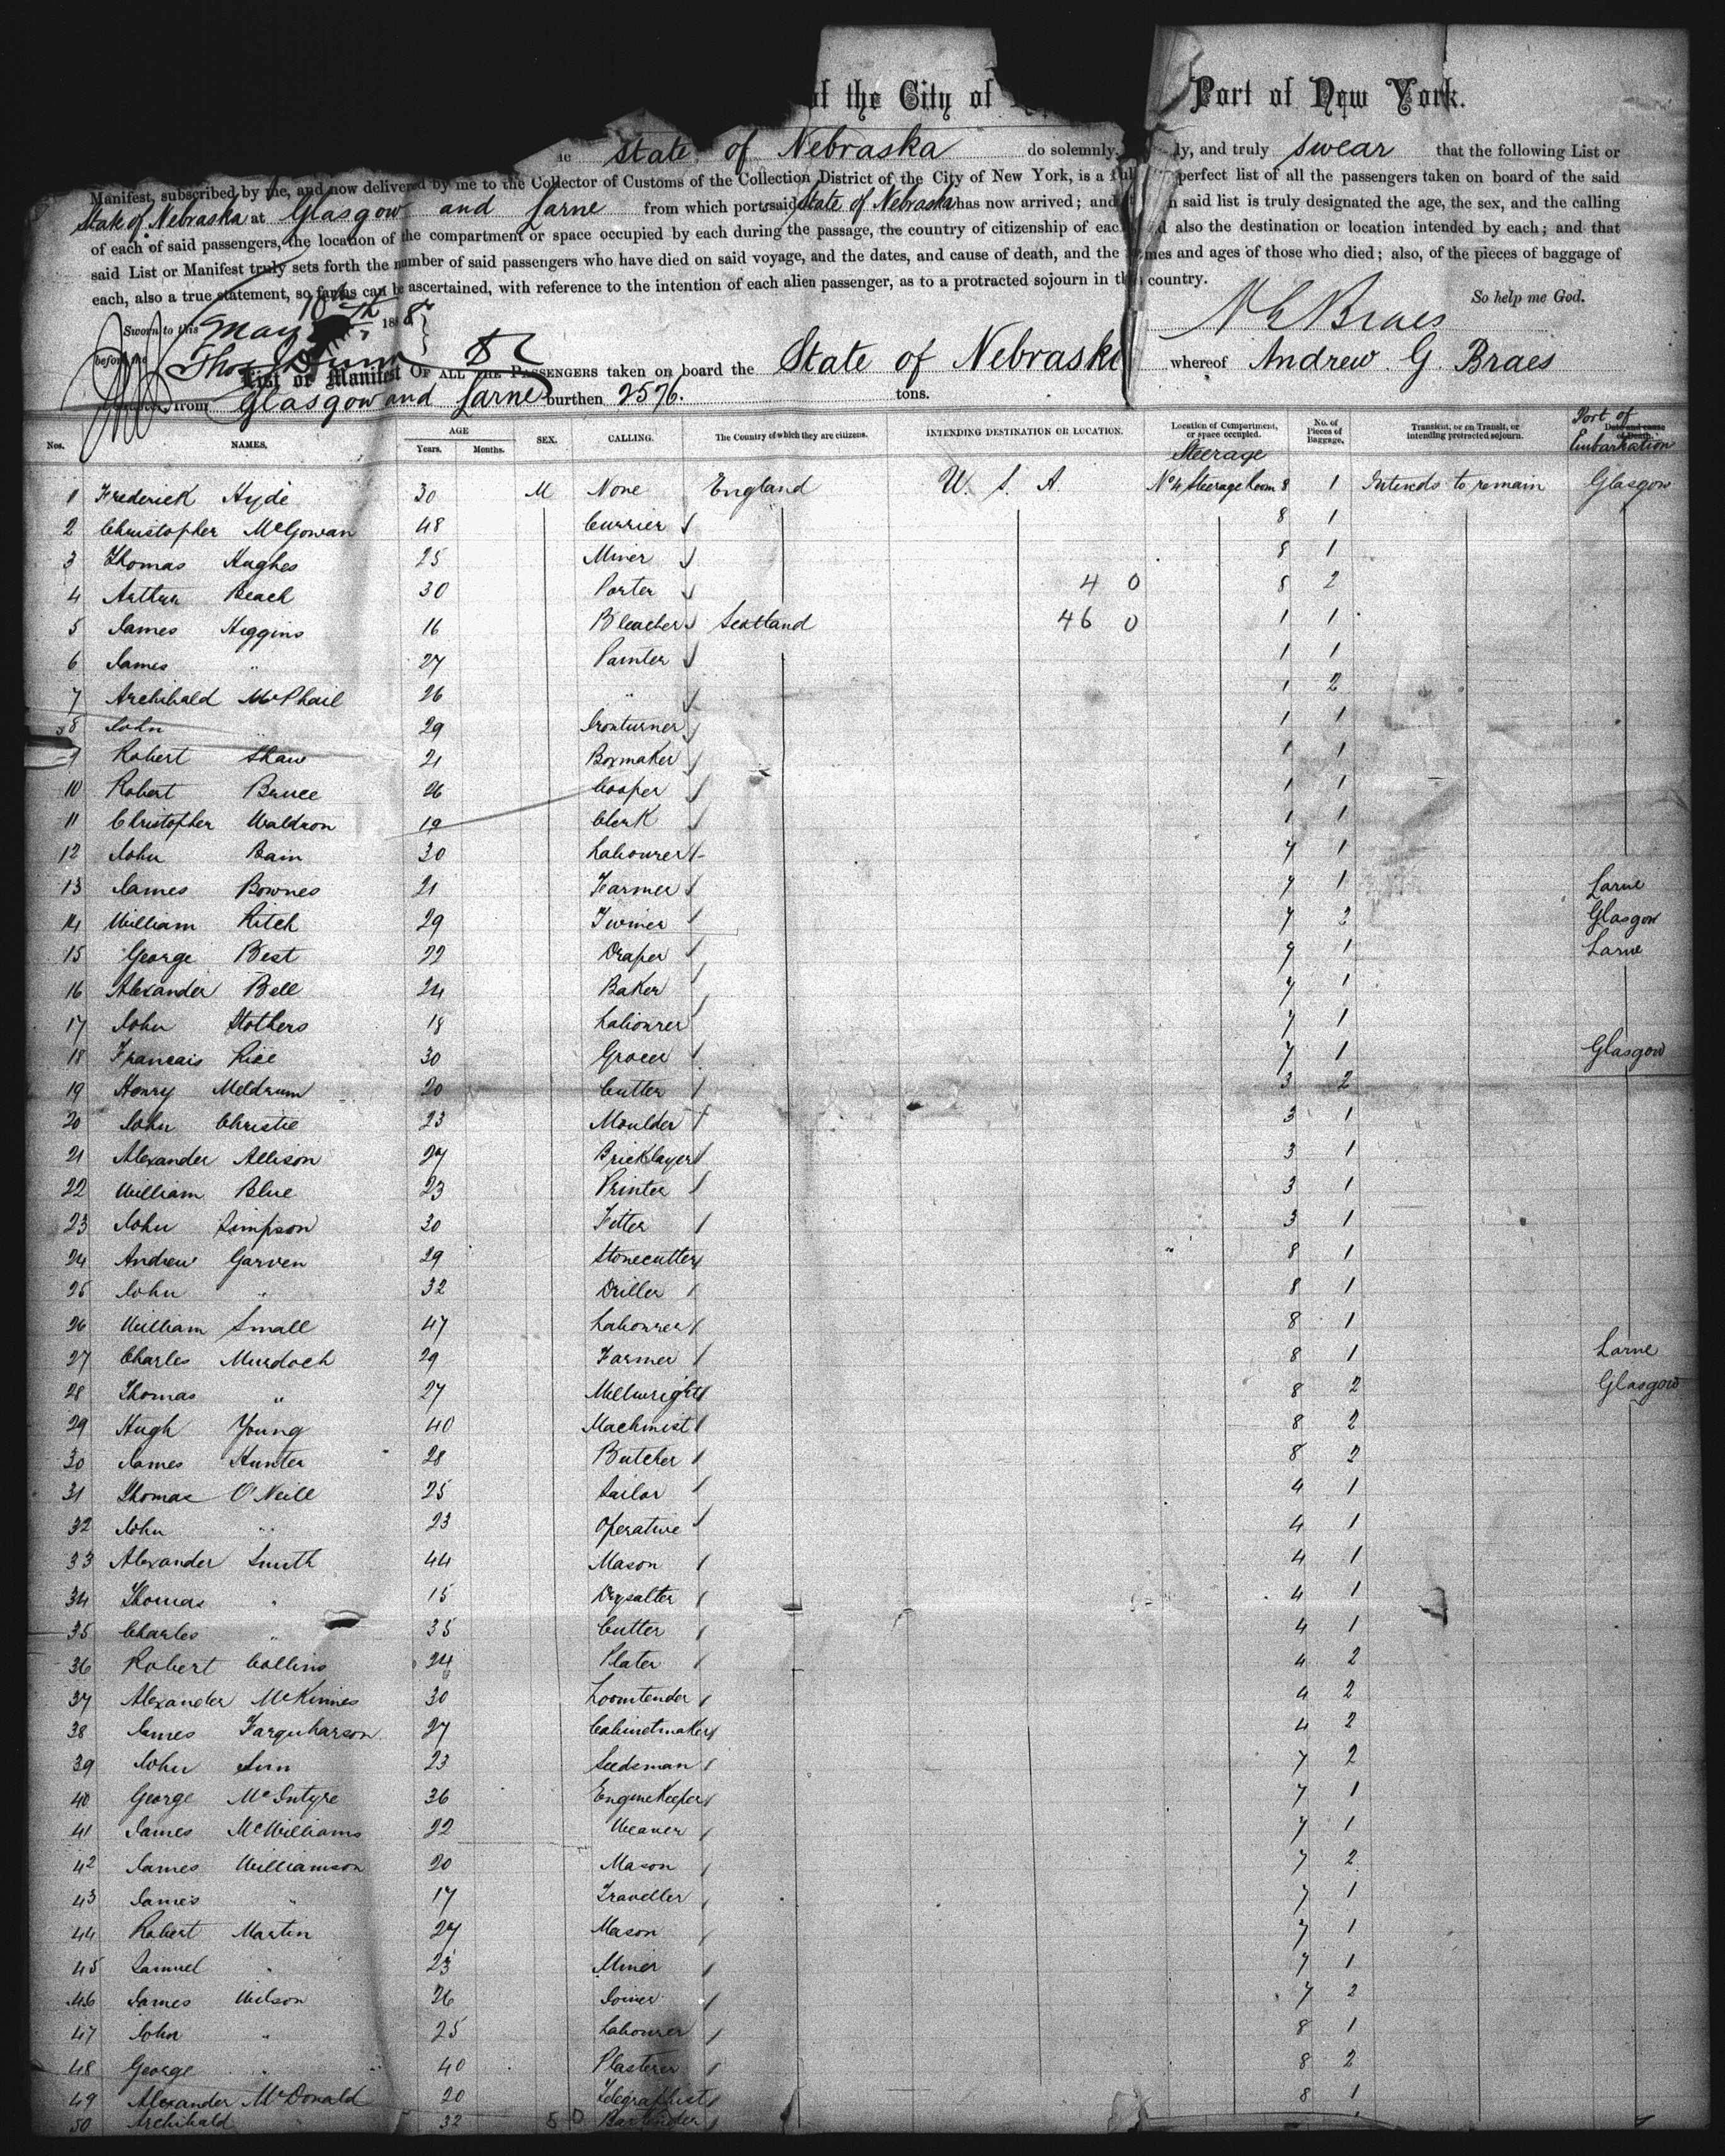 of the City of Port of New York.
State of Nebraska do solemnly, ly, and truly swear that the following List or
Manifest, subscribed by me, and now delivered by me to the Collector of Customs of the Collection District of the City of New York, is a full perfect list of all the passengers taken on board of the said
State of Nebraska at Glasgow and Larne from which port said State of Nebraska has now arrived; and n said list is truly designated the age, the sex, and the calling
of each of said passengers, the location of the compartment or space occupied by each during the passage, the country of citizenship of each also the destination or location intended by each; and that
said List or Manifest truly sets forth the number of said passengers who have died on said voyage, and the dates, and cause of death, and the names and ages of those who died; also, of the pieces of baggage of
each, also a true statement, so far as can be ascertained, with reference to the intention of each alien passenger, as to a protracted sojourn in this country.
So help me God.
Sworn to this May 10th 188
A G Braes
before me Thos
List or Manifest OF ALL THE PASSENGERS taken on board the State of Nebraska whereof Andrew G. Braes
from Glasgow and Larne burthen 2576. tons.
Nos. NAMES. AGE Years. Months. SEX. CALLING. The Country of which they are citizens. INTENDING DESTINATION OR LOCATION. Location of Compartment, or space occupied. Steerage No. of Pieces of Baggage. Transient, or on Transit, or intending protracted sojourn. Date and cause of Death. Port of Embarkation
1 Frederick Hyde 30 M None England U. S. A. No 4 Steerage Room 8 1 Intends to remain Glasgow
2 Christopher McGowan 48 Currier 8 1
3 Thomas Hughes 25 Miner 8 1
4 Arthur Beach 30 Porter 4 0 8 2
5 James Higgins 16 Bleacher Scotland 46 0 1 1
6 James " 27 Painter 1 1
7 Archibald McPhail 26 " 1 2
8 John " 29 Ironturner 1 1
9 Robert Shaw 21 Boxmaker 1 1
10 Robert Bruce 26 Cooper 1 1
11 Christopher Waldron 19 Clerk 1 1
12 John Bain 30 Labourer 7 1
13 James Bownes 21 Farmer 7 1 Larne
14 William Ritch 29 Turner 7 2 Glasgow
15 George Best 22 Draper 7 1 Larne
16 Alexander Bell 24 Baker 7 1
17 John Stothers 18 Labourer 7 1
18 Francais Rice 30 Grocer 7 1 Glasgow
19 Henry Meldrum 20 Cutter 3 2
20 John Christie 23 Moulder 3 1
21 Alexander Allison 27 Bricklayer 3 1
22 William Blue 23 Printer 3 1
23 John Simpson 30 Fitter 3 1
24 Andrew Garven 29 Stonecutter 8 1
25 John " 32 Driller 8 1
26 William Small 47 Labourer 8 1
27 Charles Murdoch 29 Farmer 8 1 Larne
28 Thomas " 27 Millwright 8 2 Glasgow
29 Hugh Young 40 Machinist 8 2
30 James Hunter 28 Butcher 8 2
31 Thomas O'Neill 25 Sailor 4 1
32 John " 23 Operative 4 1
33 Alexander Smith 44 Mason 4 1
34 Thomas " 15 Drysalter 4 1
35 Charles " 35 Cutter 4 1
36 Robert Collins 24 Plater 4 2
37 Alexander McKinnes 30 Loomtender 4 2
38 James Farquharson 27 Cabinetmaker 4 2
39 John Sim 23 Seedsman 7 2
40 George McIntyre 36 EngineKeeper 7 1
41 James McWilliams 22 Weaver 7 1
42 James Williamson 20 Mason 7 2
43 James " 17 Traveller 7 1
44 Robert Martin 27 Mason 7 1
45 Samuel " 23 Miner 7 1
46 James Wilson 26 Joiner 7 2
47 John " 25 Labourer 8 1
48 George " 40 Plasterer 8 2
49 Alexander McDonald 20 Telegraphist 8 1
50 Archibald 32 50 Bartender